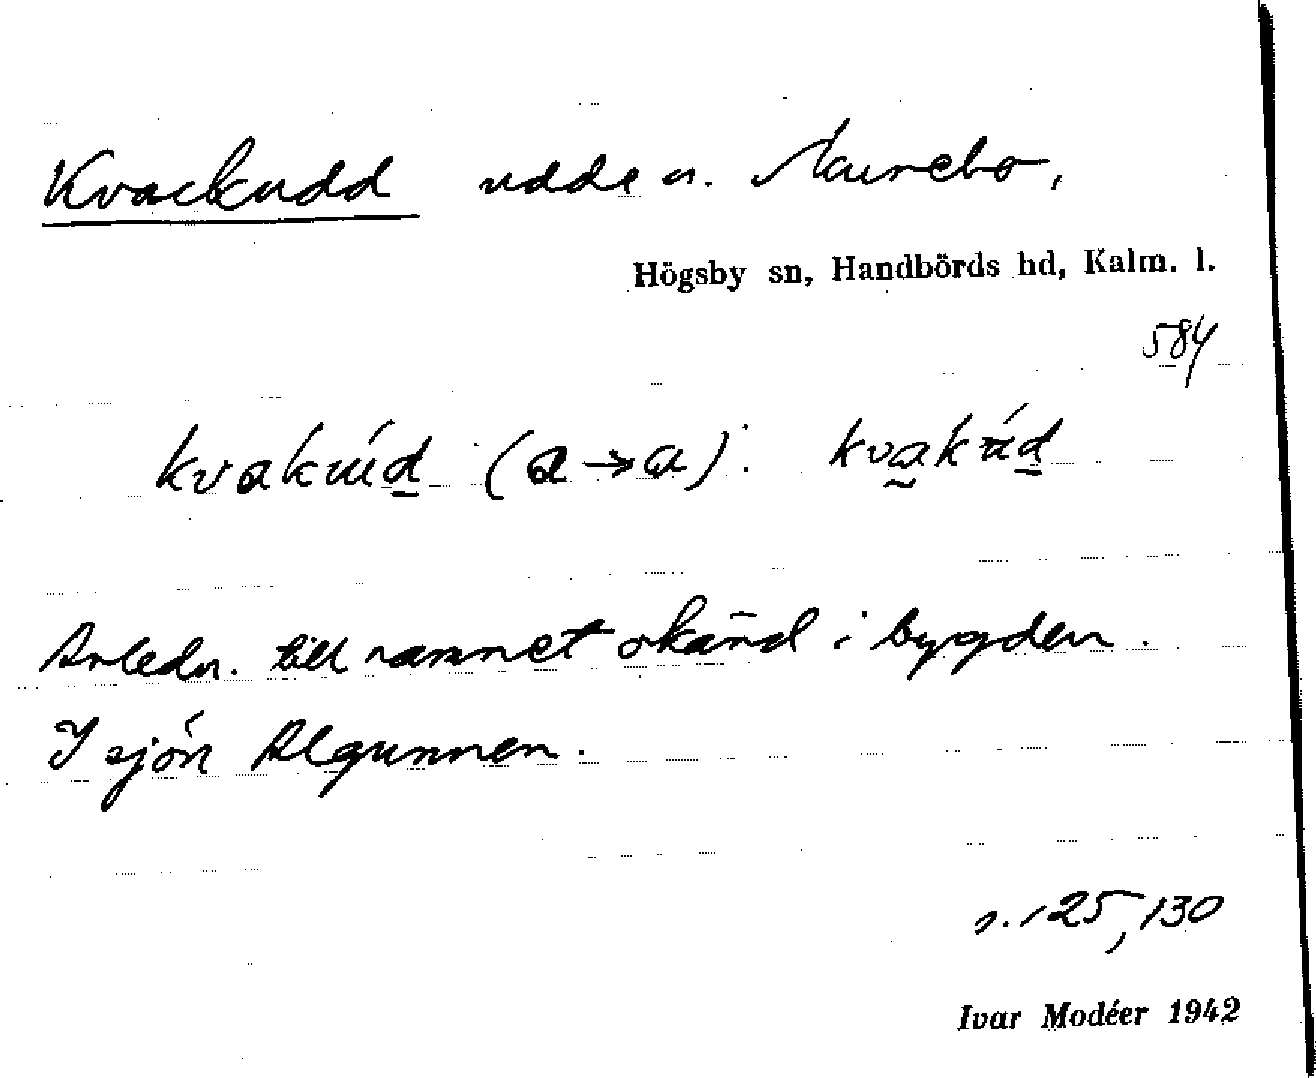 Kvackudd udde n. Aurebo,
Högsby sn, Handbörds hd, Kalm. l.
584
kvakúd (a→a): kvakúd
Anledn. till namnet okänd i bygden.
I sjön Algunnen.
s. 125, 130
Ivar Modéer 1942